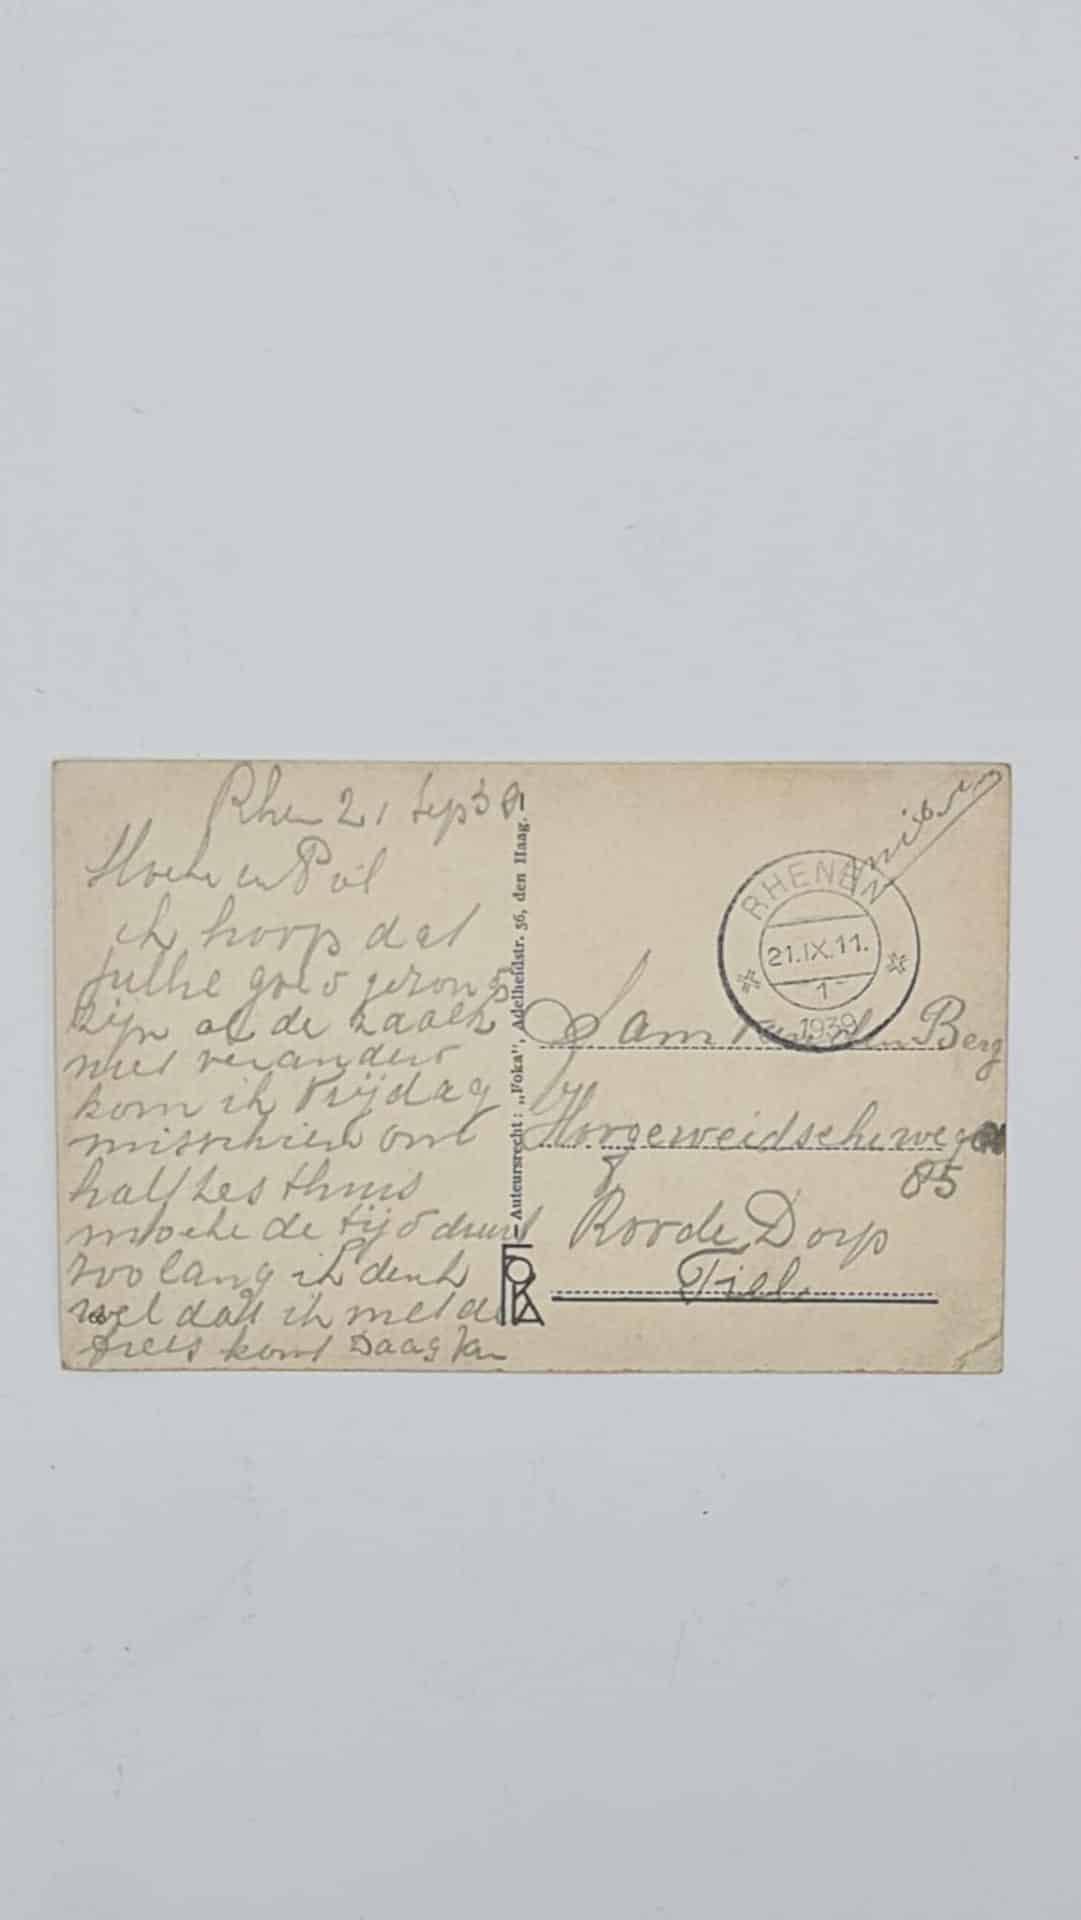 Rhen 21 Sep 39
Moeke en Pol
ik hoop dat
jullie goed gezond
zijn als de zaak
niet veranderd
kom ik Vrijdag
misschien om
half zes thuis
moeke de tijd duurt
zoo lang ik denk
wel dat ik met de
fiets kom Daag
"Auteursrecht: „Foka", Adelheidstr. 56, den Haag.
FOKA
militair
RHENEN
21.IX.11.
1
1939
Fam van den Berg
Hoogeweidscheweg
85
Roode Dorp
Tiel